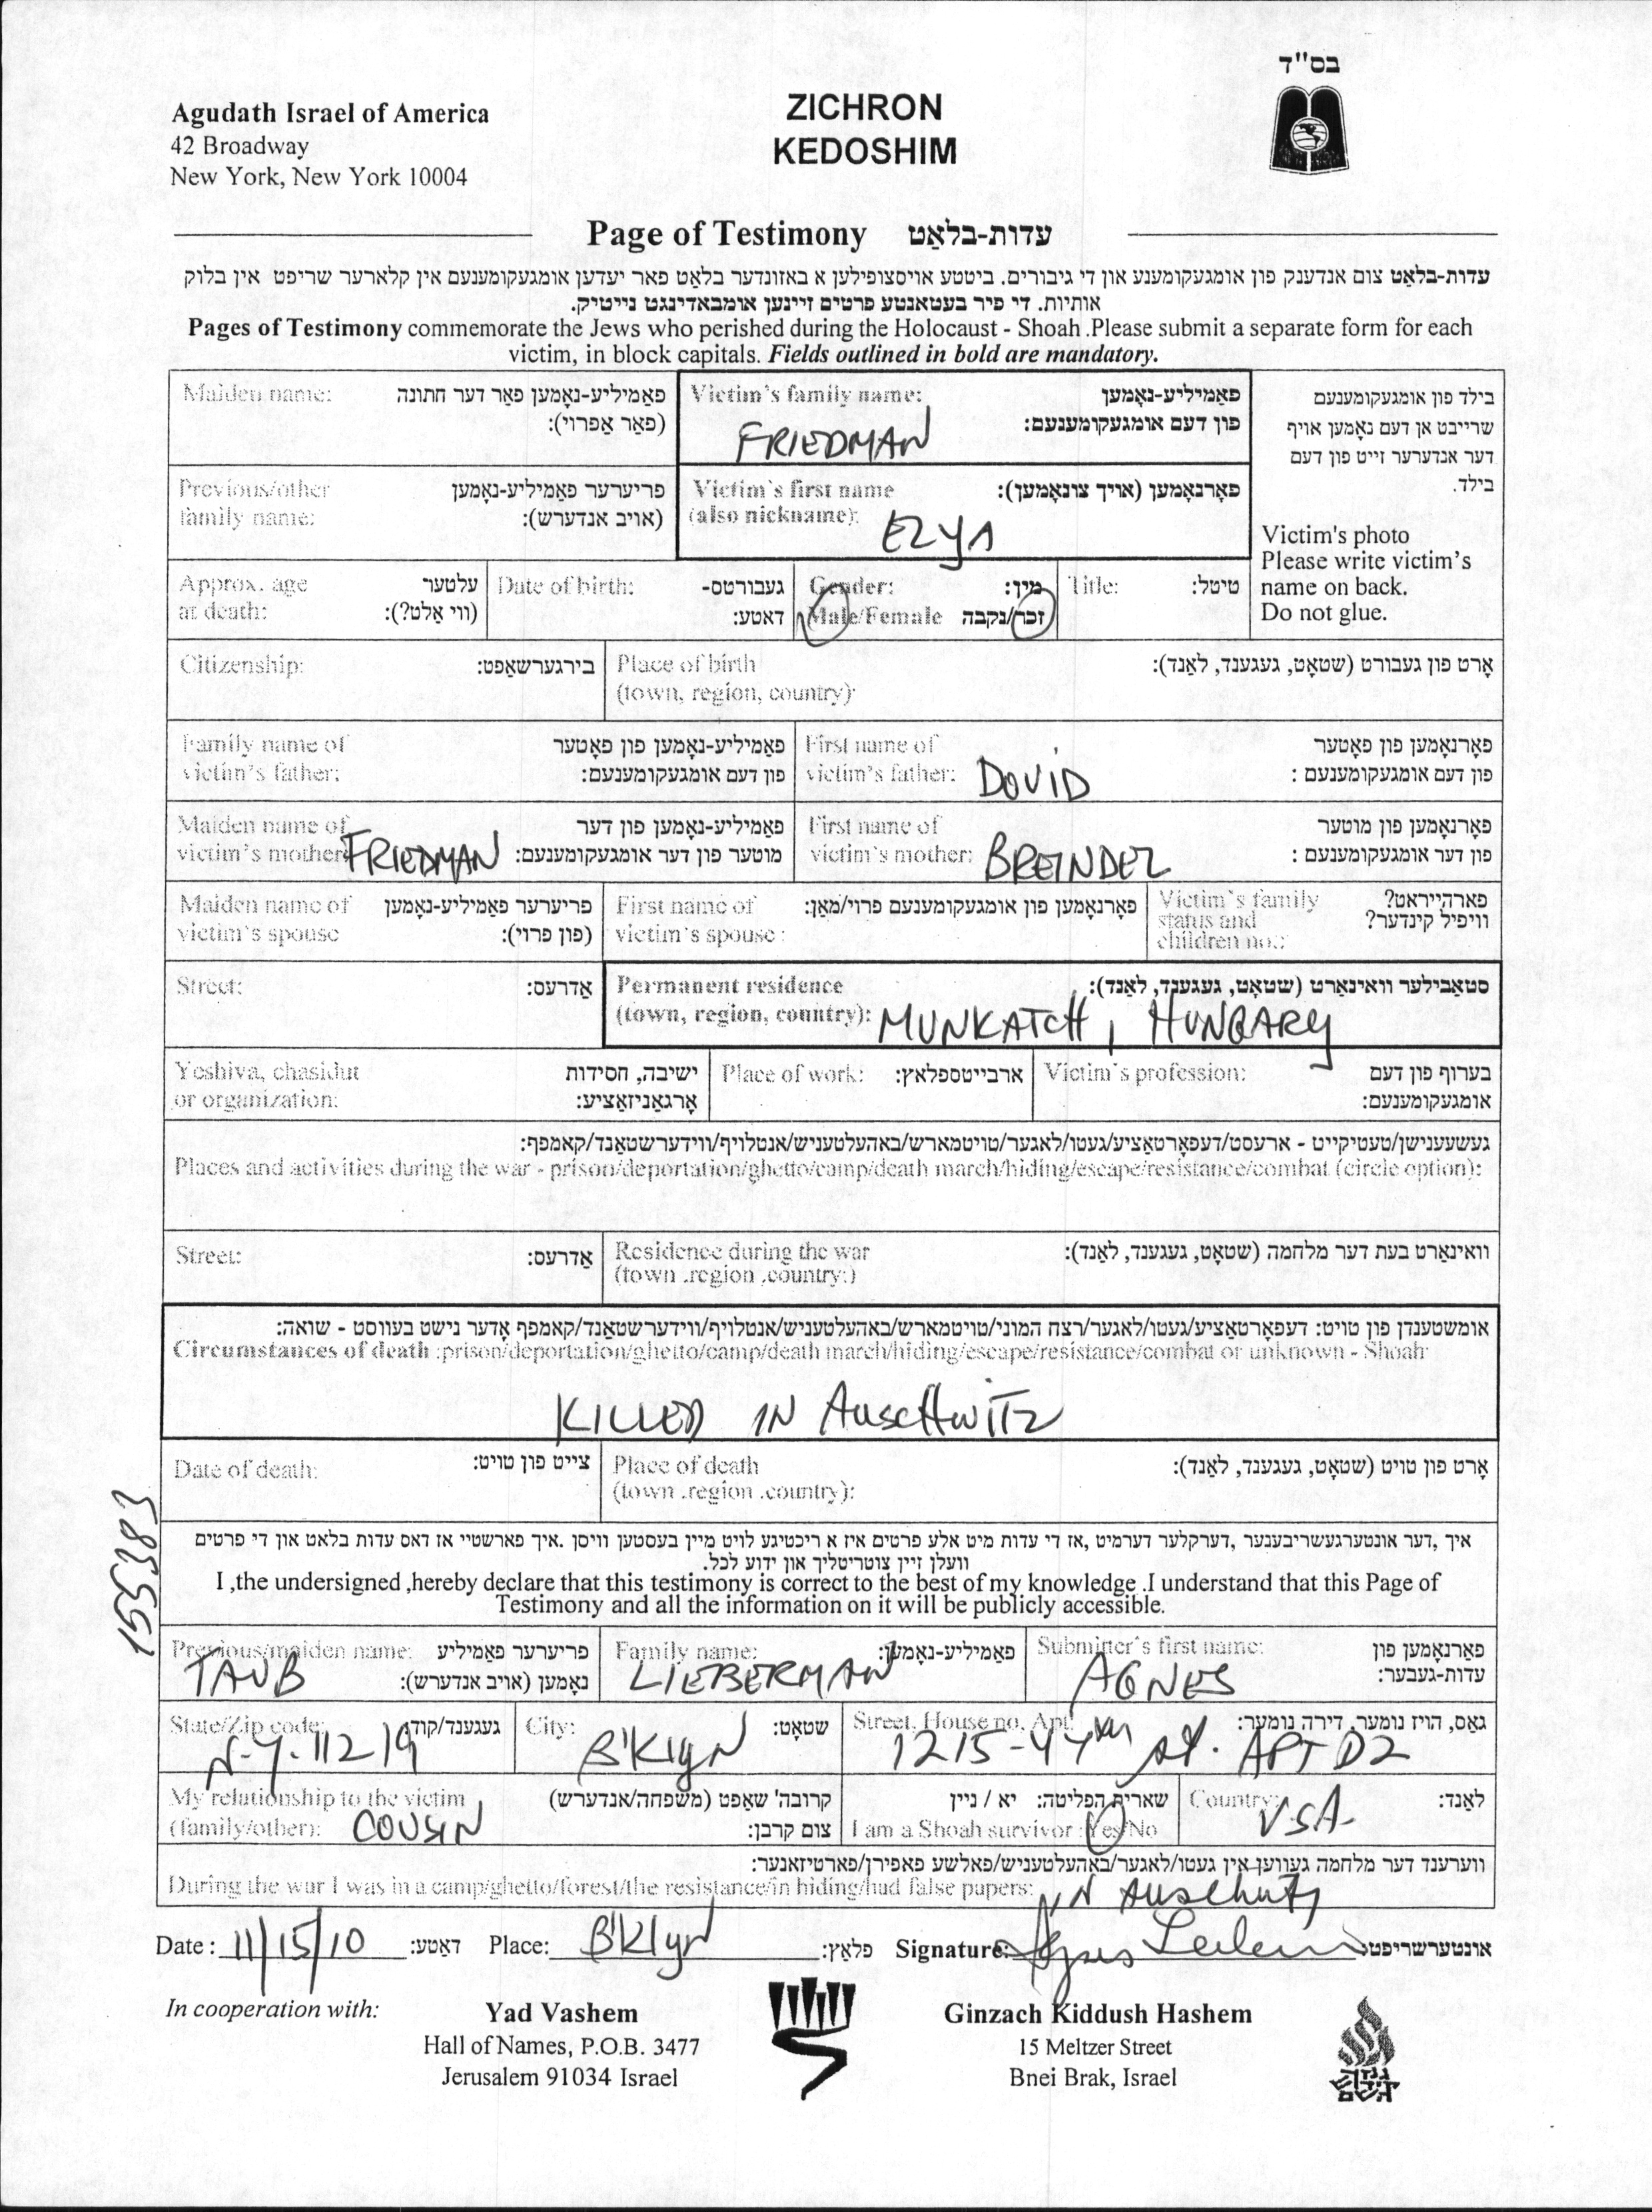 בס"ד
Agudath Israel of America
42 Broadway
New York, New York 10004
ZICHRON
KEDOSHIM
Page of Testimony עדות-בלאַט
עדות-בלאַט צום אנדענק פון אומגעקומענע און די גיבורים. ביטע אויסצופילען א באזונדער בלאַט פאר יעדען אומגעקומענעם אין קלארער שריפט אין בלוק
אותיות. די פיר בעטאנטע פרטים זיינען אומבאדינגט נייטיק.
Pages of Testimony commemorate the Jews who perished during the Holocaust - Shoah .Please submit a separate form for each
victim, in block capitals. Fields outlined in bold are mandatory.
Maiden name: פאַמיליע-נאָמען פאַר דער חתונה
(פאַר אַפרוי):
Victim's family name: פאַמיליע-נאָמען
פון דעם אומגעקומענעם:
FRIEDMAN
בילד פון אומגעקומענעם
שרייבט אן דעם נאָמען אויף
דער אנדערער זייט פון דעם
בילד.
Victim's photo
Please write victim's
name on back.
Do not glue.
Previous/other פריערער פאַמיליע-נאָמען
family name: (אויב אנדערש):
Victim's first name פאָרנאָמען (אויך צונאָמען):
(also nickname):
Approx. age עלטער
at death: (ווי אַלט?):
Date of birth: געבורטס-
דאטע:
Gender: מין:
Male/Female זכר/נקבה
Title: טיטל:
Citizenship: בירגערשאַפט:
Place of birth אָרט פון געבורט (שטאָט, געגענד, לאַנד):
(town, region, country):
Family name of פאַמיליע-נאָמען פון פאָטער
victim's father: פון דעם אומגעקומענעם:
First name of פאָרנאָמען פון פאָטער
victim's father: DOVID פון דעם אומגעקומענעם :
Maiden name of פאַמיליע-נאָמען פון דער
victim's mother: FRIEDMAN מוטער פון דער אומגעקומענעם:
First name of פאָרנאָמען פון מוטער
victim's mother: BREINDEL פון דער אומגעקומענעם :
Maiden name of פריערער פאַמיליע-נאָמען
victim's spouse (פון פרוי):
First name of פאָרנאָמען פון אומגעקומענעם פרוי/מאַן:
victim's spouse :
Victim's family פארהייראט?
status and וויפיל קינדער?
children no.:
Street: אַדרעס:
Permanent residence סטאַבילער וואינארט (שטאָט, געגענד, לאַנד):
(town, region, country): MUNKATCH, HUNGARY
Yeshiva, chasidut ישיבה, חסידות
or organization: אָרגאַניזאַציע:
Place of work: ארבייטספלאץ:
Victim's profession: בערוף פון דעם
אומגעקומענעם:
געשעענישן/טעטיקייט - ארעסט/דעפאָרטאַציע/געטו/לאגער/טויטמארש/באהעלטעניש/אנטלויף/ווידערשטאַנד/קאמפף:
Places and activities during the war - prison/deportation/ghetto/camp/death march/hiding/escape/resistance/combat (circle option):
Street: אַדרעס:
Residence during the war וואינאַרט בעת דער מלחמה (שטאָט, געגענד, לאַנד):
(town .region .country:)
אומשטענדן פון טויט: דעפאָרטאַציע/געטו/לאגער/רצח המוני/טויטמארש/באהעלטעניש/אנטלויף/ווידערשטאַנד/קאמפף אָדער נישט בעווסט - שואה:
Circumstances of death :prison/deportation/ghetto/camp/death march/hiding/escape/resistance/combat or unknown - Shoah
KILLED IN AUSCHWITZ
Date of death: צייט פון טויט:
Place of death אָרט פון טויט (שטאָט, געגענד, לאַנד):
(town .region .country):
155383
איך ,דער אונטערגעשריבענער ,דערקלער דערמיט ,אז די עדות מיט אלע פרטים איז א ריכטיגע לויט מיין בעסטען וויסן .איך פארשטיי אז דאס עדות בלאט און די פרטים
וועלן זיין צוטריטליך און ידוע לכל.
I ,the undersigned ,hereby declare that this testimony is correct to the best of my knowledge .I understand that this Page of
Testimony and all the information on it will be publicly accessible.
Previous/maiden name: פריערער פאַמיליע
TAUB נאָמען (אויב אנדערש):
Family name: פאַמיליע-נאָמען:
LIEBERMAN
Submitter's first name: פאַרנאָמען פון
AGNES עדות-געבער:
State/Zip code: געגענד/קוד:
N.Y. 11219
City: שטאָט:
B'Klyn
Street, House no, Apt: גאַס, הויז נומער, דירה נומער:
1215-44 St. APT D2
My relationship to the victim קרובה' שאַפט (משפחה/אנדערש)
(family/other): COUSIN צום קרבן:
שארית הפליטה: יא / ניין
I am a Shoah survivor :Yes/No
Country: לאַנד:
U.S.A.
ווערענד דער מלחמה געווען אין געטו/לאגער/באַהעלטעניש/פאלשע פאפירן/פארטיזאנער:
During the war I was in a camp/ghetto/forest/the resistance/in hiding/had false papers: IN Auschwitz
Date : 11/15/10 דאַטע: Place: B'Klyn פלאַץ: Signature: אונטערשריפט
In cooperation with:
Yad Vashem
Hall of Names, P.O.B. 3477
Jerusalem 91034 Israel
Ginzach Kiddush Hashem
15 Meltzer Street
Bnei Brak, Israel
גנזך
קידוש
השם